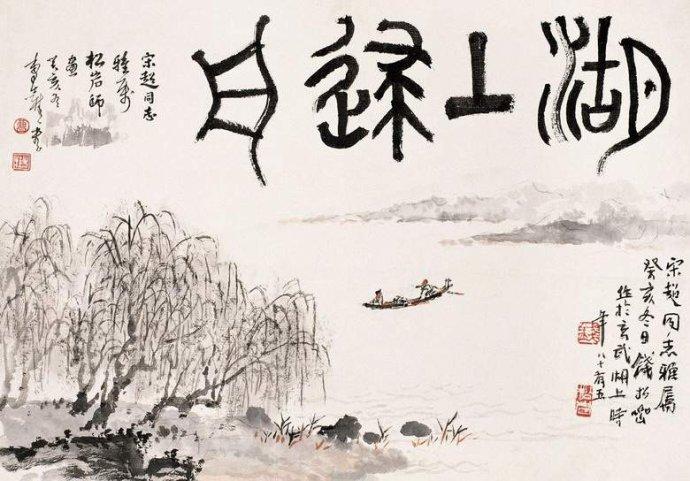 湖上歸舟
宋超同志雅屬
癸亥冬日錢松嵒
作於玄武湖上時
年八十有五
宋超同志
雅屬
松岩師
畫
癸亥冬